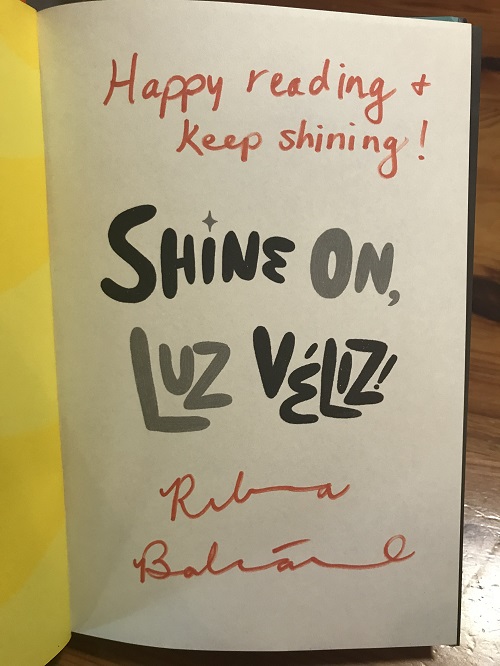 Happy reading +
keep shining!
SHINE ON,
LUZ VÉLIZ!
Rebecca
Balcárcel